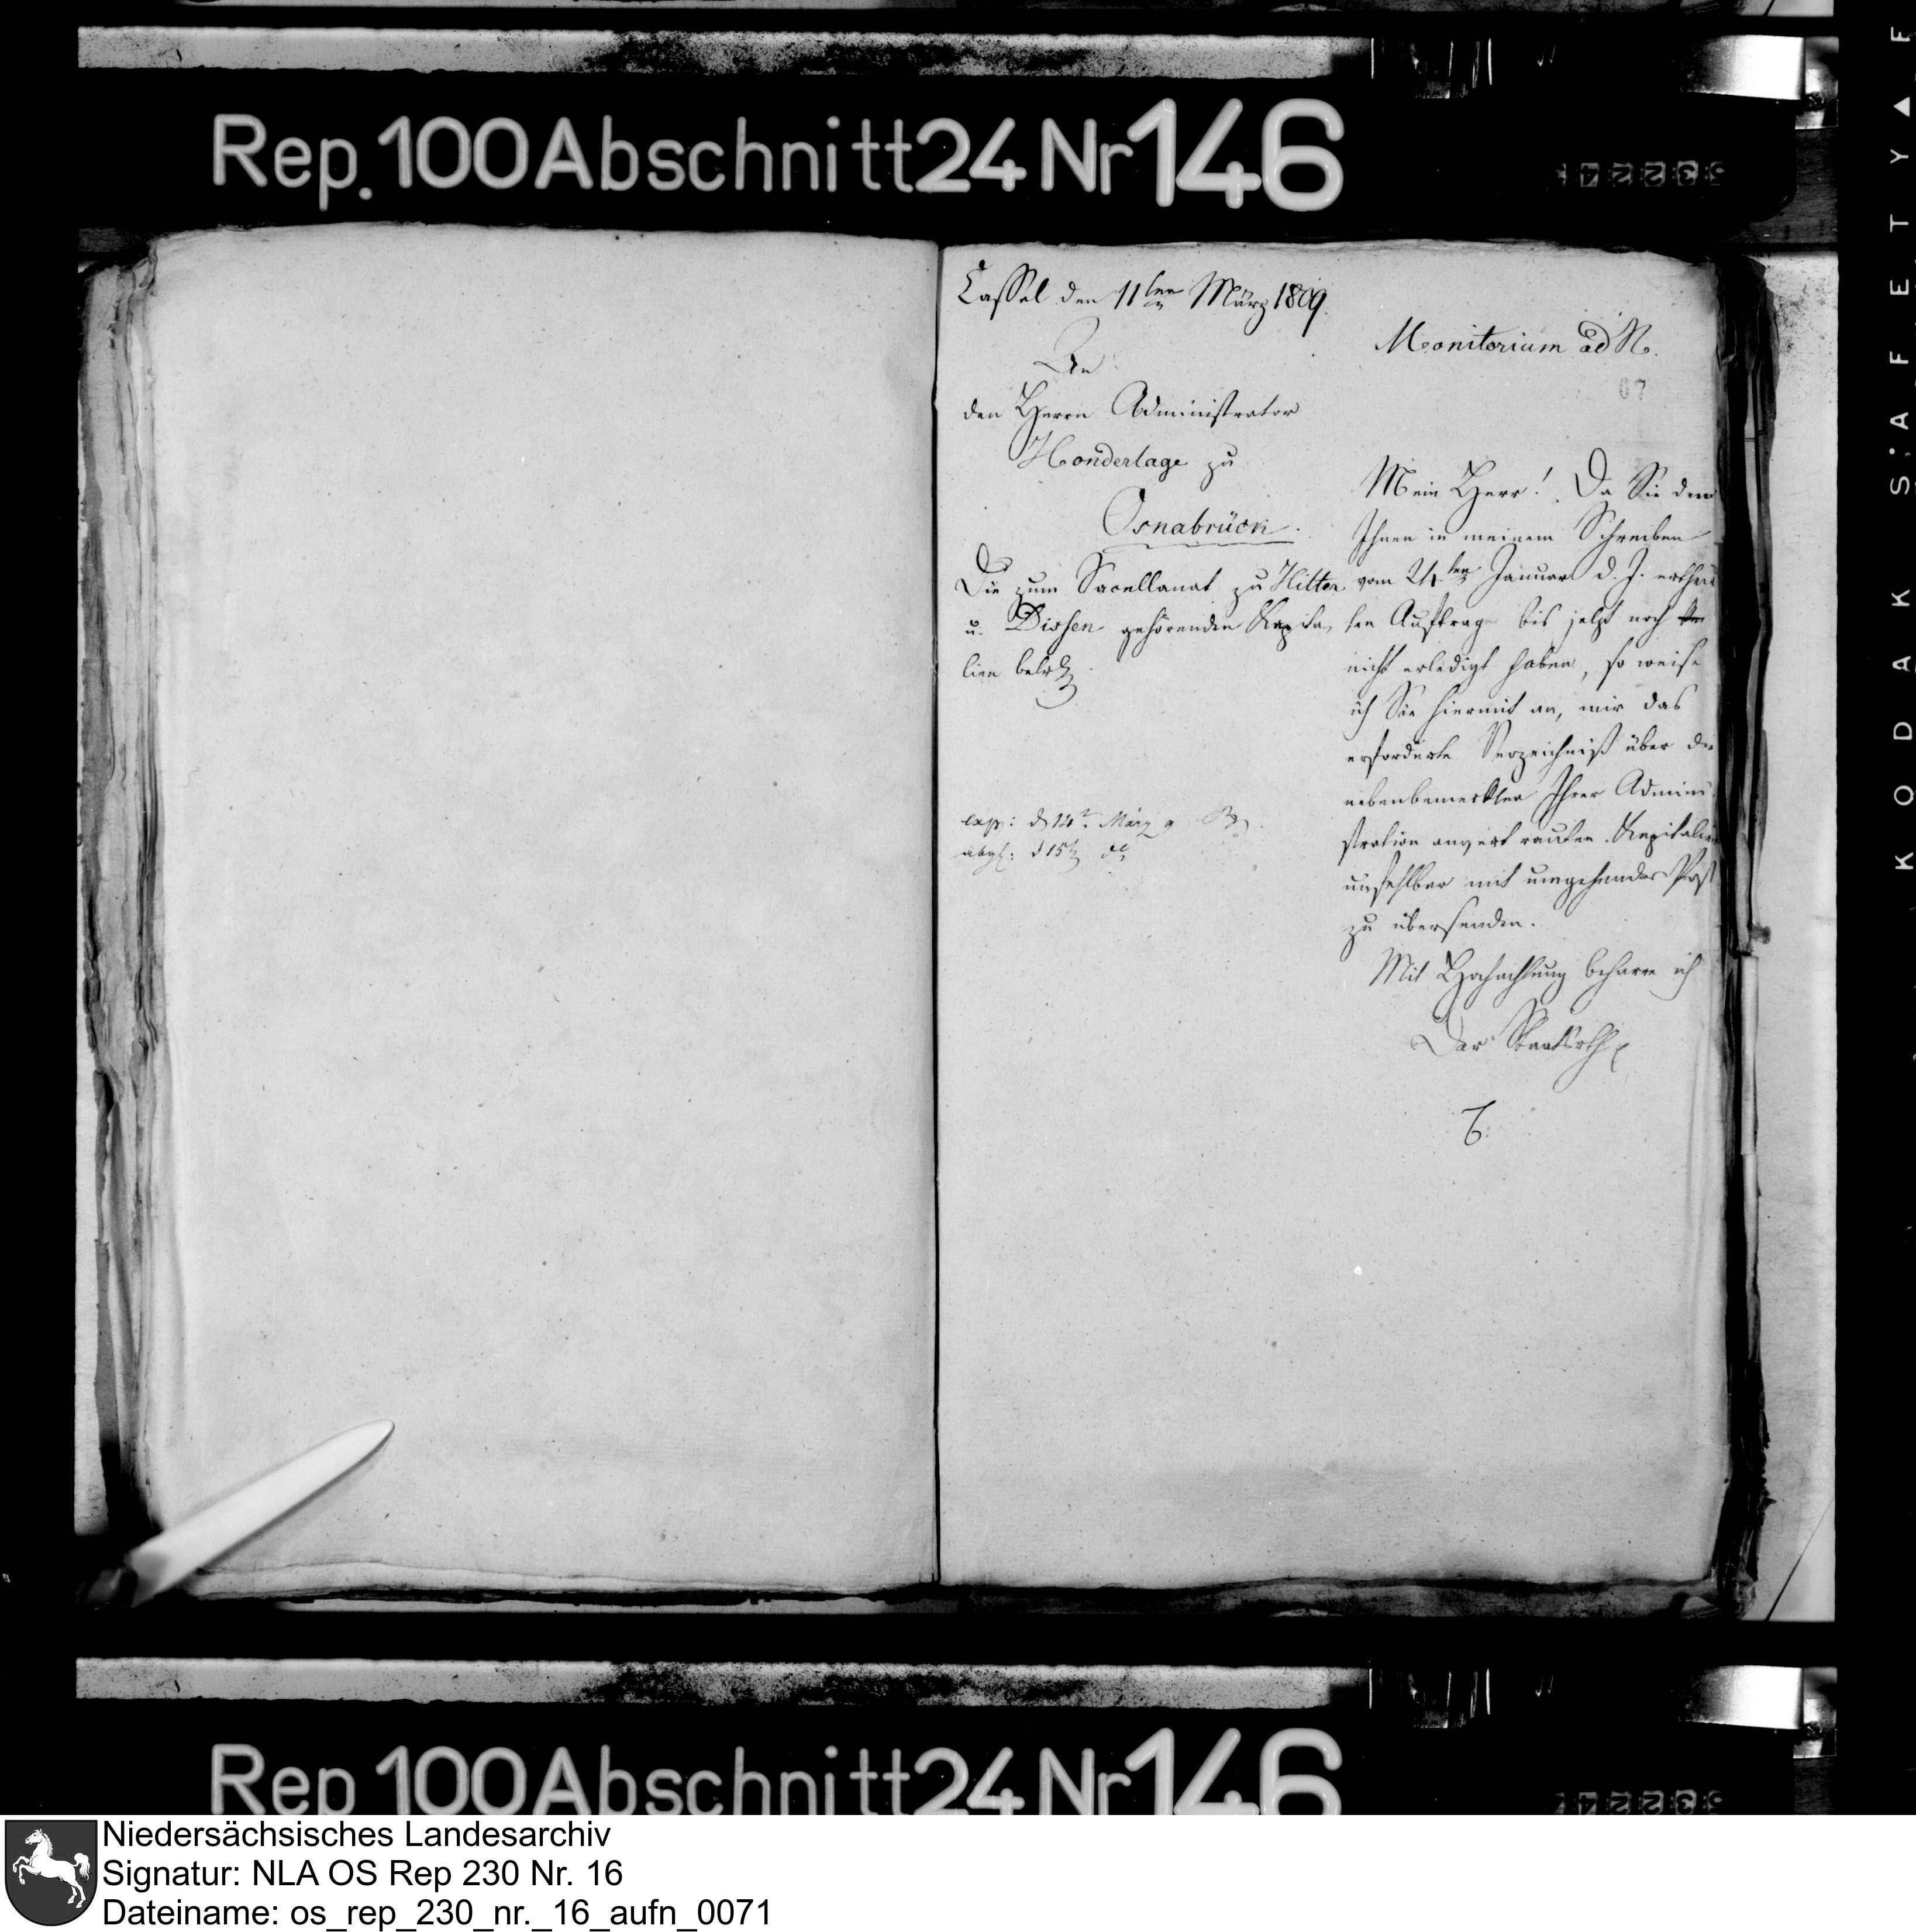 Rep. 100 Abschnitt 24 Nr 146
Cassel den 11ten März 1809.
An
den Herrn Administrator
Honderlage zu
Osnabrück.
Die zum Sacellanat zu Hilter
u. Dissen gehörenden Kapita-
lien betr.
exp: März 9
abgs: d 15t
Monitorium ad N.
67
Mein Herr! Da Sie den
Ihnen in meinem Schreiben
vom 24ten Januar d. J. erthei-
ten Auftrag bis jetzt noch
nicht erledigt haben, so weise
ich Sie hiermit an, mir das
erforderte Verzeichniß über die
nebenbemerkten Ihrer Admini-
stration anvertrauten Kapitalien
unfehlbar mit umgehender Post
zu übersenden.
Mit Hochachtung beharre ich
Der Staatsrath
KODAK S:AFETY▲F
Rep 100 Abschnitt 24 Nr 146
Niedersächsisches Landesarchiv
Signatur: NLA OS Rep 230 Nr. 16
Dateiname: os_rep_230_nr._16_aufn_0071